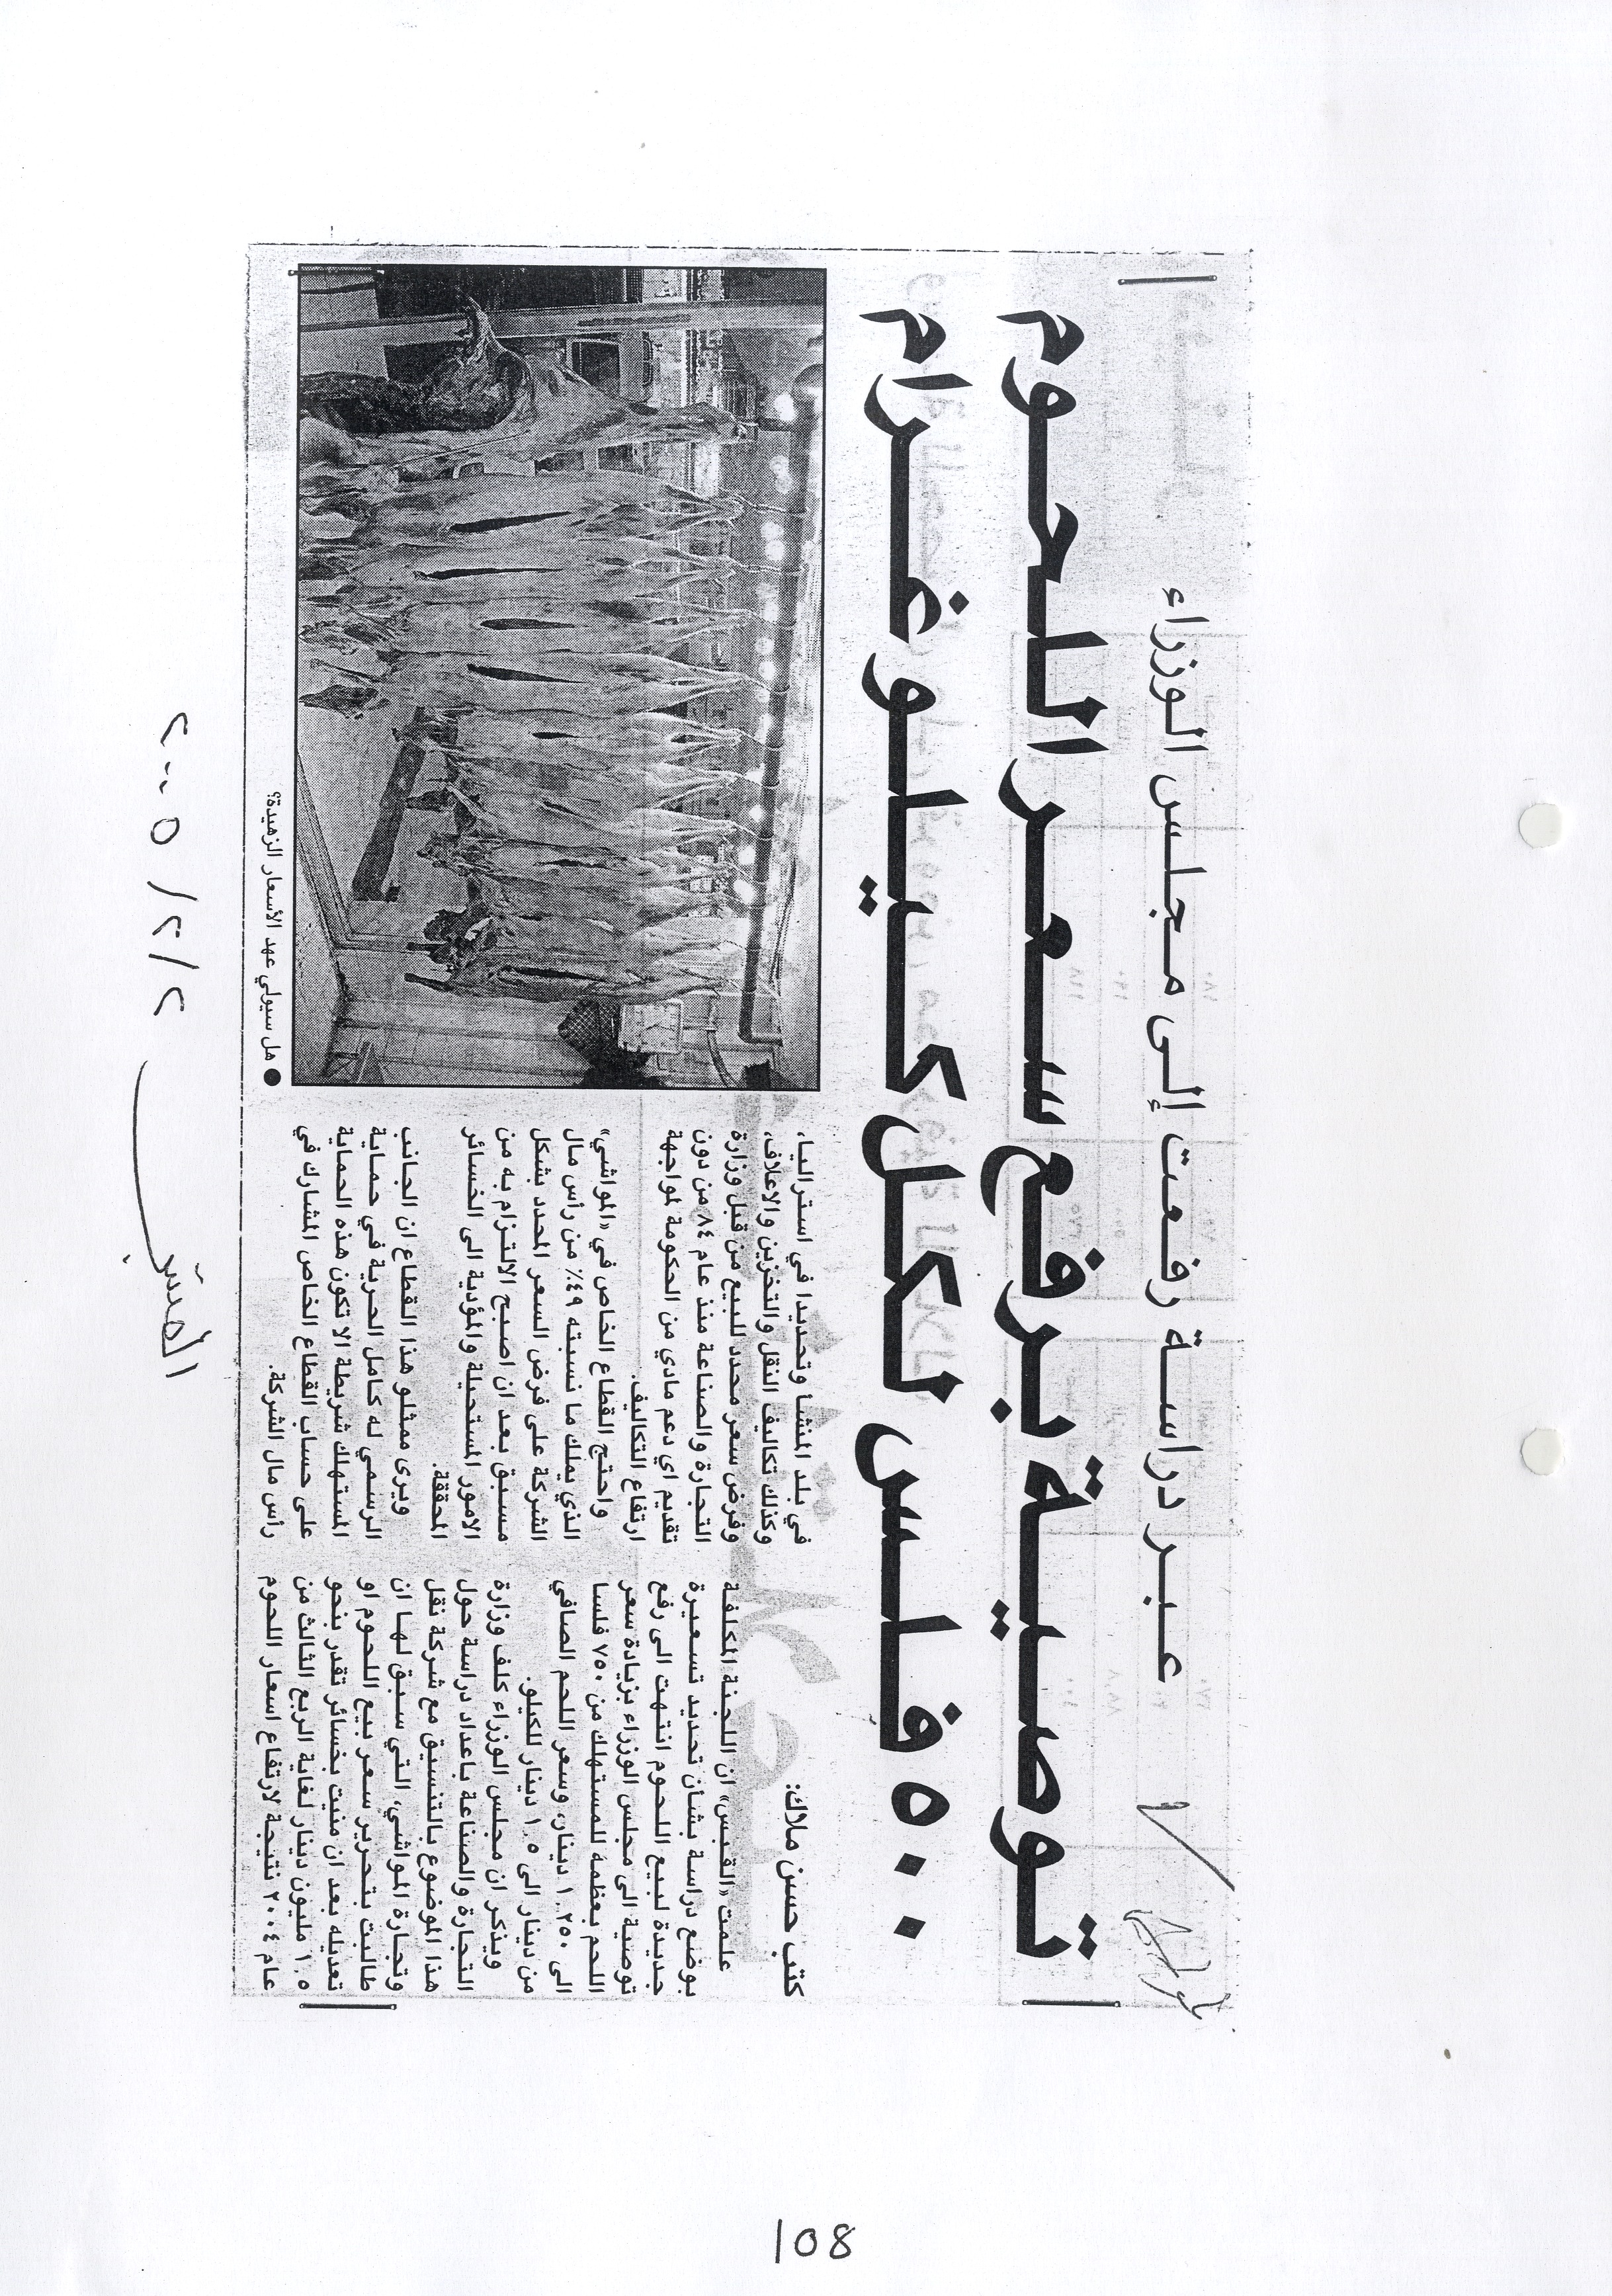 عبر دراسة رفعت إلى مجلس الوزراء
توصية برفع سعر اللحوم
٥٠٠ فلس لكل كيلو غرام
كتب حسن ملاك:
علمت «القبس» ان اللجنة المكلفة
بوضع دراسة بشأن تحديد تسعيرة
جديدة لبيع اللحوم انتهت الى رفع
توصية الى مجلس الوزراء بزيادة سعر
اللحم بعظمه للمستهلك من ٧٥٠ فلسا
الى ١.٢٥٠ دينار، وسعر اللحم الصافي
من دينار الى ١.٥ دينار للكيلو.
ويذكر ان مجلس الوزراء كلف وزارة
التجارة والصناعة باعداد دراسة حول
هذا الموضوع بالتنسيق مع شركة نقل
وتجارة المواشي، التي سبق لها ان
طالبت بتحرير سعر بيع اللحوم او
تعديله بعد ان منيت بخسائر تقدر بنحو
١.٥ مليون دينار لغاية الربع الثالث من
عام ٢٠٠٤ نتيجة لارتفاع اسعار اللحوم
في بلد المنشا وتحديدا في استراليا،
وكذلك تكاليف النقل والتخزين والاعلاف،
وفرض سعر محدد للبيع من قبل وزارة
التجارة والصناعة منذ عام ٨٤ من دون
تقديم اي دعم مادي من الحكومة لمواجهة
ارتفاع التكاليف.
واحتج القطاع الخاص في «المواشي»
الذي يملك ما نسبته ٤٩٪ من رأس مال
الشركة على فرض السعر المحدد بشكل
مسبق بعد ان اصبح الالتزام به من
الامور المستحيلة والمؤدية الى الخسائر
المحققة.
ويرى ممثلو هذا القطاع ان الجانب
الرسمي له كامل الحرية في حماية
المستهلك شريطة الا تكون هذه الحماية
على حساب القطاع الخاص المشارك في
رأس مال الشركة.
● هل سيولي عهد الأسعار الزهيدة؟
القبس
٢٠٠٥/٢/٢
108